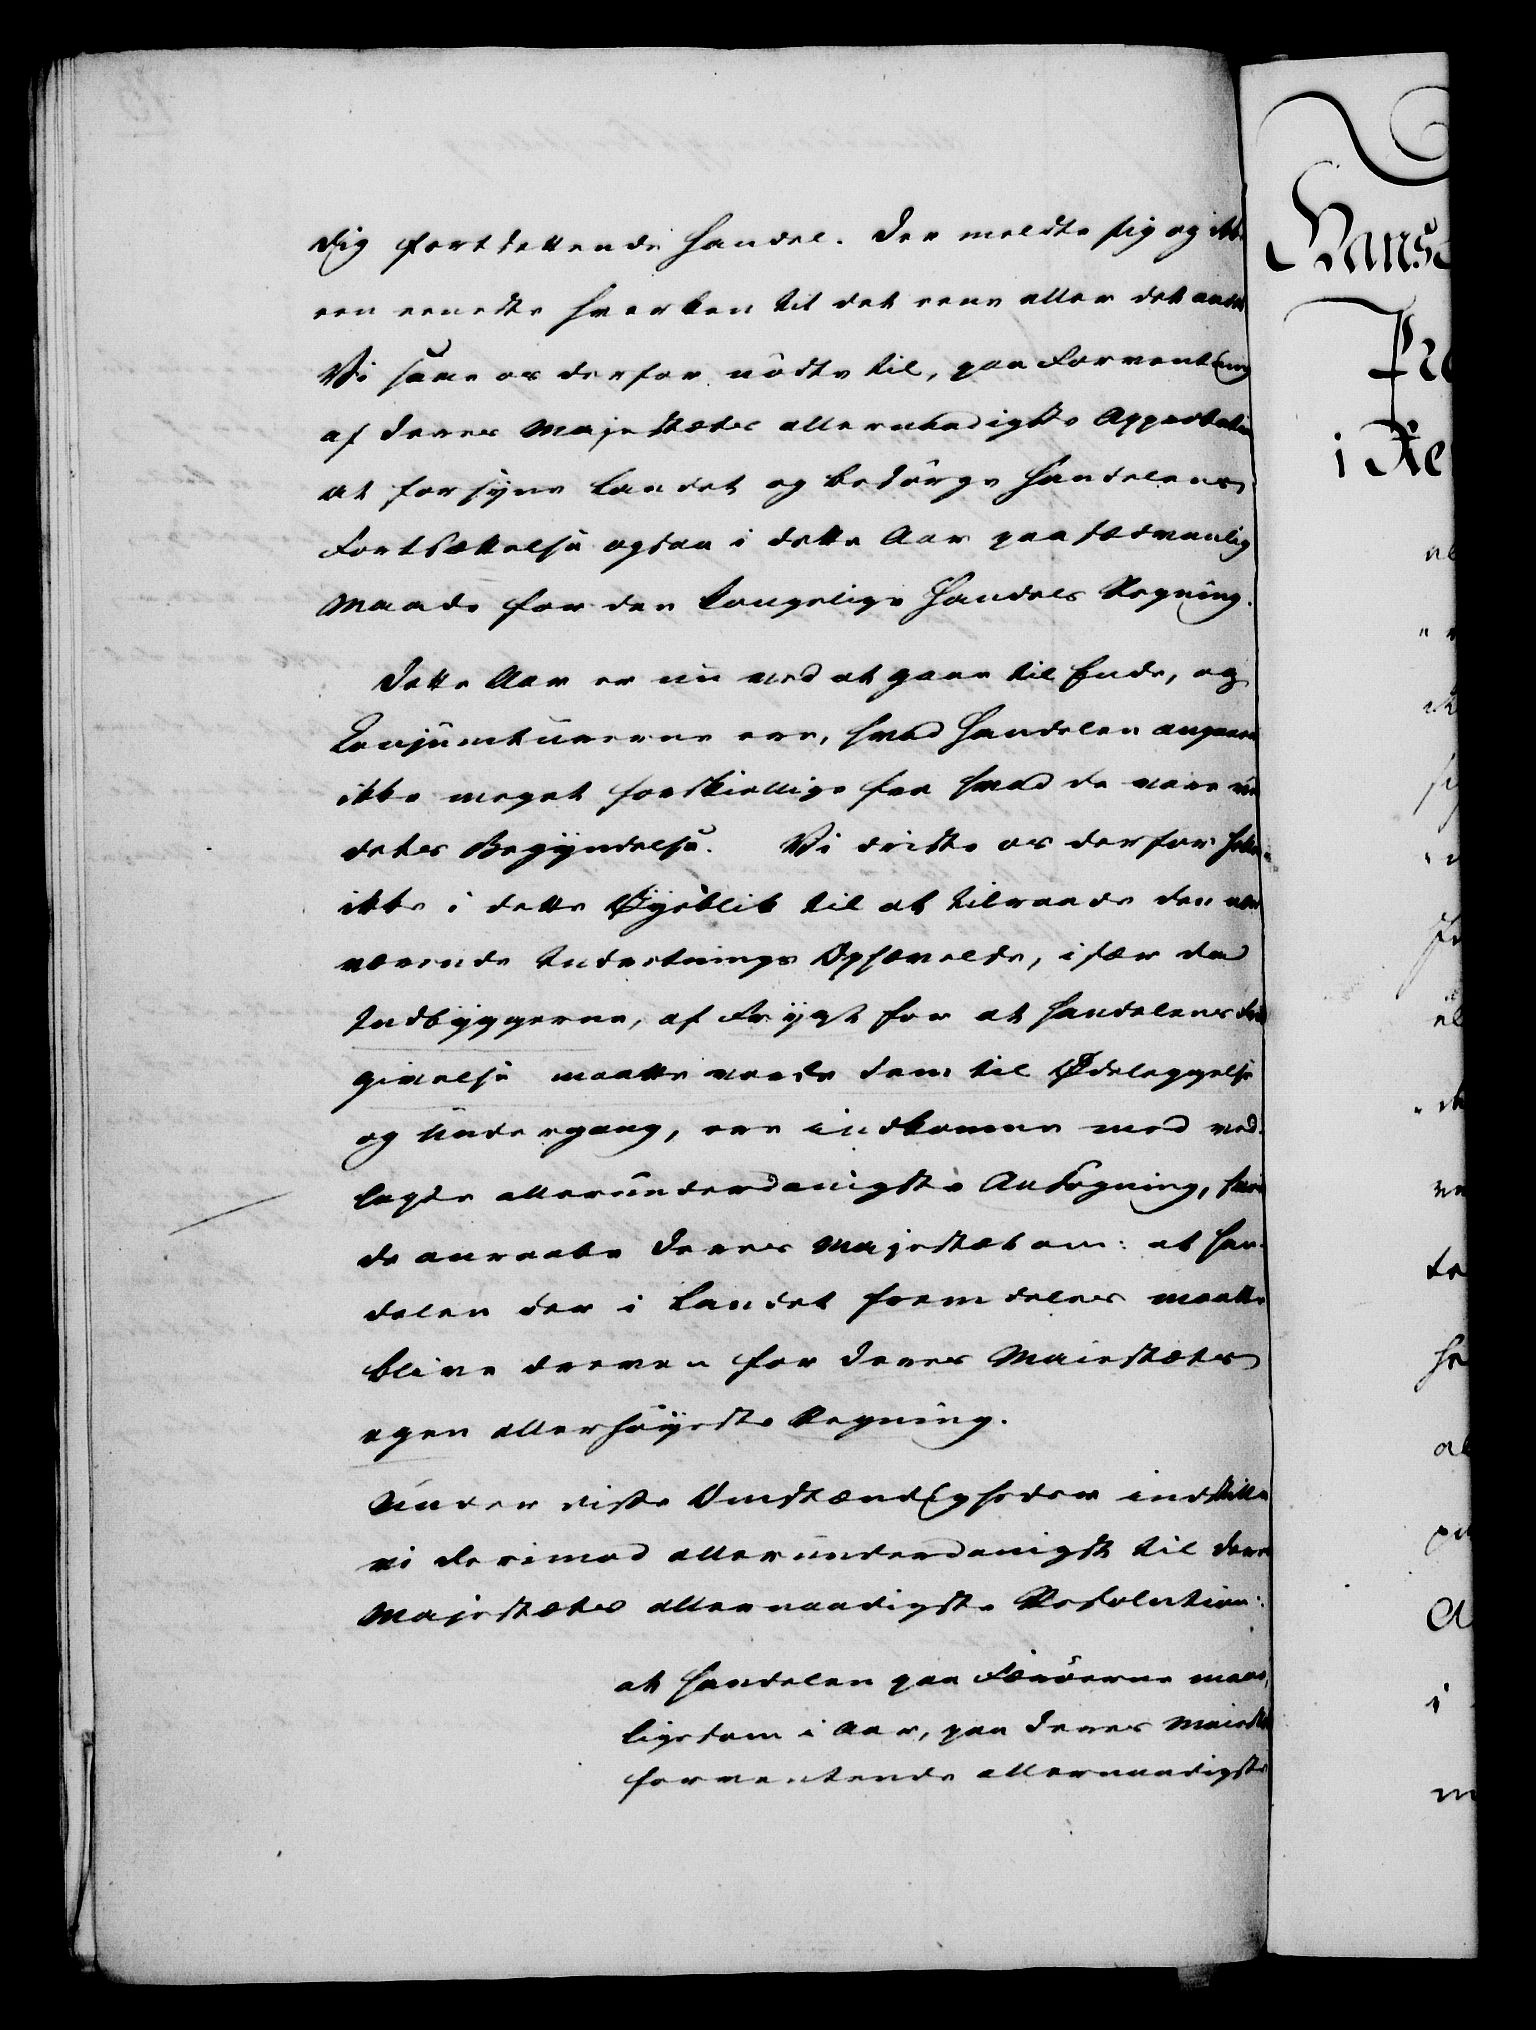 dig fortsettende Handel. Der meldte sig og ikke
een eeneste hverken til det eene eller det andet
Vi saae os derfor nödte til, paa Forventning
af Deres Majestætes allernaadigste Approbation
at forsyne Landet og besörge Handelens
Fortsættelse ogsaa i dette Aar paa sædvanlig
Maade for den kongelige Handels Regning.
Dette Aar er nu ved at gaae til Ende, og
Conjuncturerne ere, hvad Handelen angaaer
ikke meget forskiellige fra hvad de vare ved
dets Begyndelse. Vi driste os derfor heller
ikke i dette Øyeblik til at tilraade den nær
værende Indretnings Ophævelse, især da
Indbyggerne, af Frygt for at Handelens fri
givelse maatte vorde dem til Ødeleggelse
og Undergang, ere indkomne med ved-
lagde allerunderdanigste Ansögning, hvori
de anraabe Deres Majestæt om: at Han-
delen der i Landet fremdeles maatte
blive dreven for Deres Maiestætes
egen allerhöyeste Regning.
Under disse Omstændigheder indstille
vi derimod allerunderdanigst til Deres
Majestætes allernaadigste Resolution:
at Handelen paa Færöerne maae,
ligesom i Aar, paa Deres Maiestæts
forventende allernaadigste
Hans
i Re